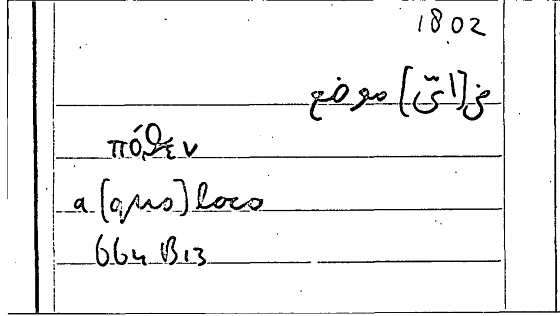 1802
من [اىّ] موضع
πόθεν
a [quo] loco
664 B13